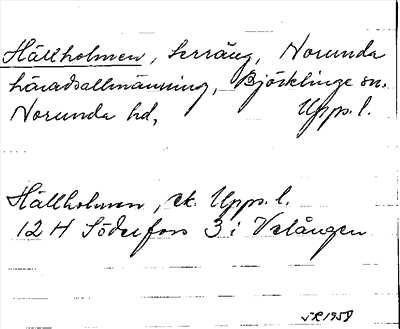 Hällholmen, terräng, Norunda
häradsallmänning, Björklinge sn.
Norunda hd, Upps. l.
Hällholmen, ek. Upps. l.
12 H Söderfors 3 i Vslången